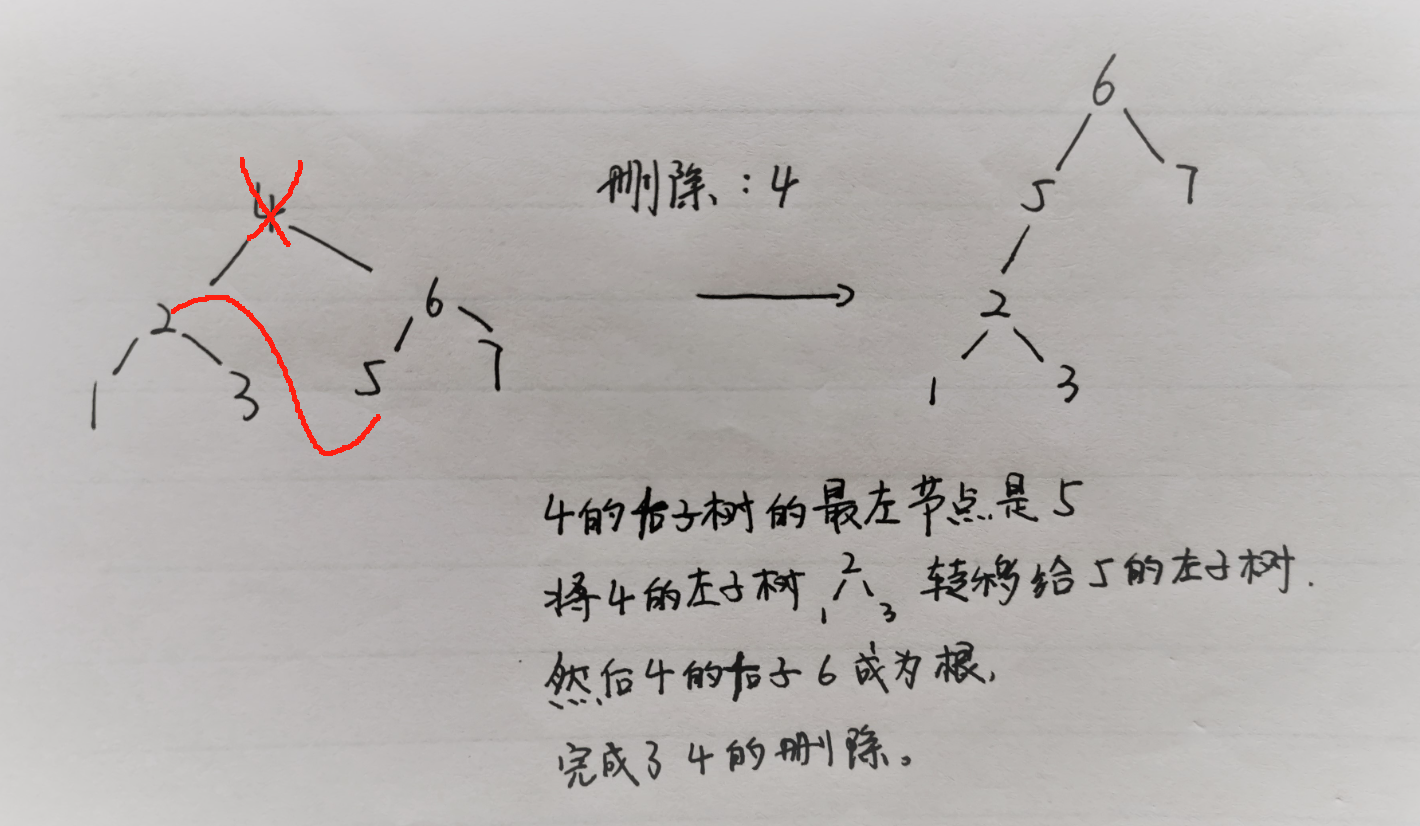 4
2
6
1
3
5
7
删除：4
6
5
7
2
1
3
4的右子树的最左节点是5
将4的左子树 2 1 3 转移给5的左子树.
然后4的右子6成为根,
完成了4的删除。